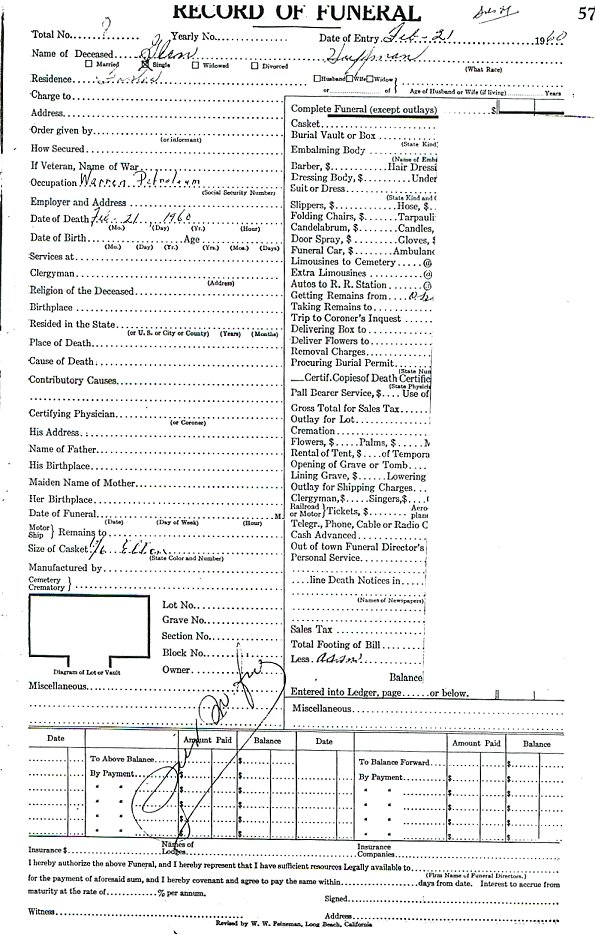 RECORD OF FUNERAL
57
Total No. ? Yearly No. Date of Entry Feb - 21 1960
Name of Deceased Glen Huffman
☐ Married ☒ Single ☐ Widowed ☐ Divorced (What Race)
Residence ☐ Husband ☐ Wife ☐ Widow
or of Age of Husband or Wife (if living) Years
Charge to
Address
Order given by
(or informant)
How Secured
If Veteran, Name of War
Occupation Warren Petroleum
(Social Security Number)
Employer and Address
Date of Death Feb - 21 1960
(Mo.) (Day) (Yr.) (Hour)
Date of Birth Age
(Mo.) (Day) (Yr.) (Yrs.) (Mos.) (Days)
Services at
Clergyman
(Address)
Religion of the Deceased
Birthplace
Resided in the State
(or U. S. or City or County) (Years) (Months)
Place of Death
Cause of Death
Contributory Causes
Certifying Physician
(or Coroner)
His Address
Name of Father
His Birthplace
Maiden Name of Mother
Her Birthplace
Date of Funeral M
(Date) (Day of Week) (Hour)
Motor
Ship } Remains to
Size of Casket
(State Color and Number)
Manufactured by
Cemetery
Crematory }
Diagram of Lot or Vault
Lot No.
Grave No.
Section No.
Block No.
Owner
Miscellaneous
Complete Funeral (except outlays) $
Casket
Burial Vault or Box
(State Kind)
Embalming Body
(Name of Emb
Barber, $ Hair Dressi
Dressing Body, $ Under
Suit or Dress
(State Kind and C
Slippers, $ Hose, $
Folding Chairs, $ Tarpauli
Candelabrum, $ Candles,
Door Spray, $ Gloves, $
Funeral Car, $ Ambulanc
Limousines to Cemetery @
Extra Limousines @
Autos to R. R. Station @
Getting Remains from
Taking Remains to
Trip to Coroner's Inquest
Delivering Box to
Deliver Flowers to
Removal Charges
Procuring Burial Permit
(State Num
Certif. Copies of Death Certific
(State Physici
Pall Bearer Service, $ Use of
Gross Total for Sales Tax
Outlay for Lot
Cremation
Flowers, $ Palms, $ M
Rental of Tent, $ of Tempora
Opening of Grave or Tomb
Lining Grave, $ Lowering
Outlay for Shipping Charges
Clergyman, $ Singers, $
Railroad
or Motor } Tickets, $ Aero-
plane
Telegr., Phone, Cable or Radio C
Cash Advanced
Out of town Funeral Director's
Personal Service
line Death Notices in
(Names of Newspapers)
Sales Tax
Total Footing of Bill
Less Assn
Balance
Entered into Ledger, page or below.
Miscellaneous
Date Amount Paid Balance Date Amount Paid Balance
To Above Balance $ To Balance Forward $
By Payment $ By Payment $ $
" " $ $ " " $ $
" " $ $ " " $ $
" " $ $ " " $ $
" " $ $ " " $ $
Insurance $ Names of
Lodges Insurance
Companies
I hereby authorize the above Funeral, and I hereby represent that I have sufficient resources Legally available to
(Firm Name of Funeral Directors.)
for the payment of aforesaid sum, and I hereby covenant and agree to pay the same within days from date. Interest to accrue from
maturity at the rate of % per annum.
Signed
Witness Address
Revised by W. W. Feineman, Long Beach, California